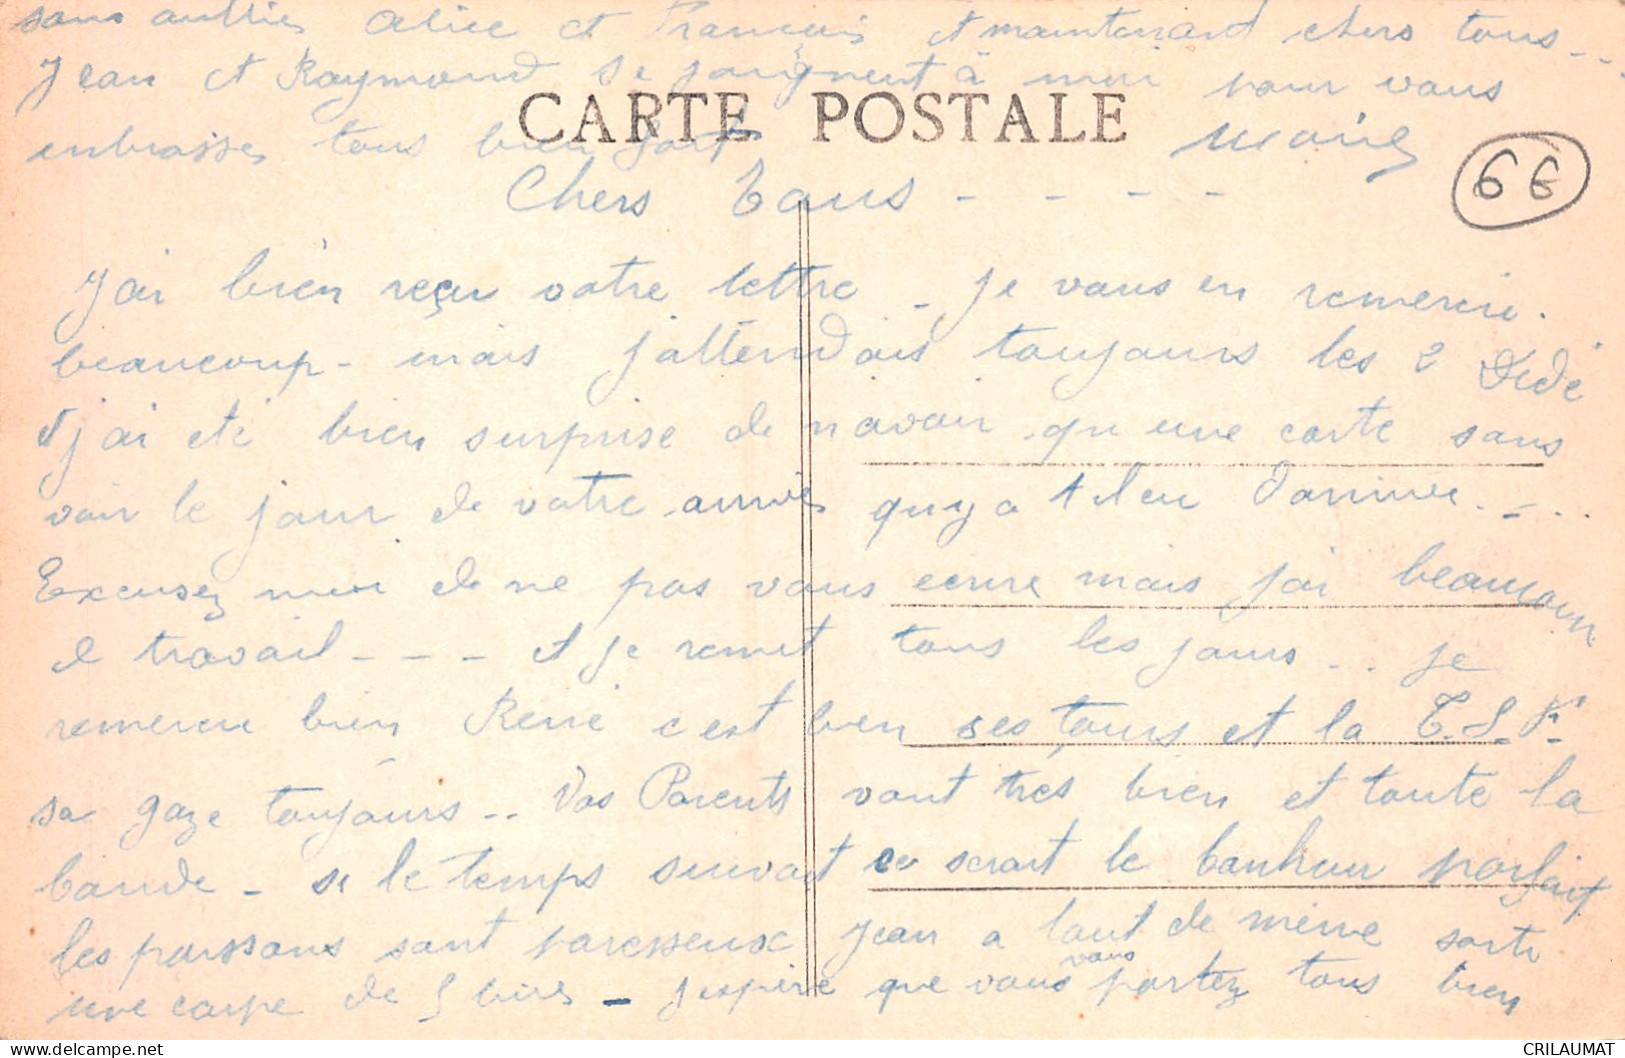 sans oublier Alice et Francais et maintenant chers tous...
Jean et Raymond se joignent à moi pour vous
CARTE POSTALE
embrasser tous bien fort
66
Chers Tous - - - -
J'ai bien reçu votre lettre - je vous en remercie.
beaucoup - mais j'attendais toujours les 2 Dédé
j'ai eté bien surprise de n'avoir qu'une carte sans
voir le jour de votre arrivée qu'y a t il eu
Excusez moi de ne pas vous ecrire mais j'ai beaucoup
de travail - - - et je remet tous les jours... je
remercie bien René c'est bien ses tours et la T.S.F.
sa gaze toujours.. Vos Parents vont très bien et toute la
bande - si le temps suivait ce serait le bonheur parfait
les poissons sont paresseux Jean a tout de même sorti
une carpe de 5 livres - J'espère que vous vous portez tous bien
CRILAUMAT